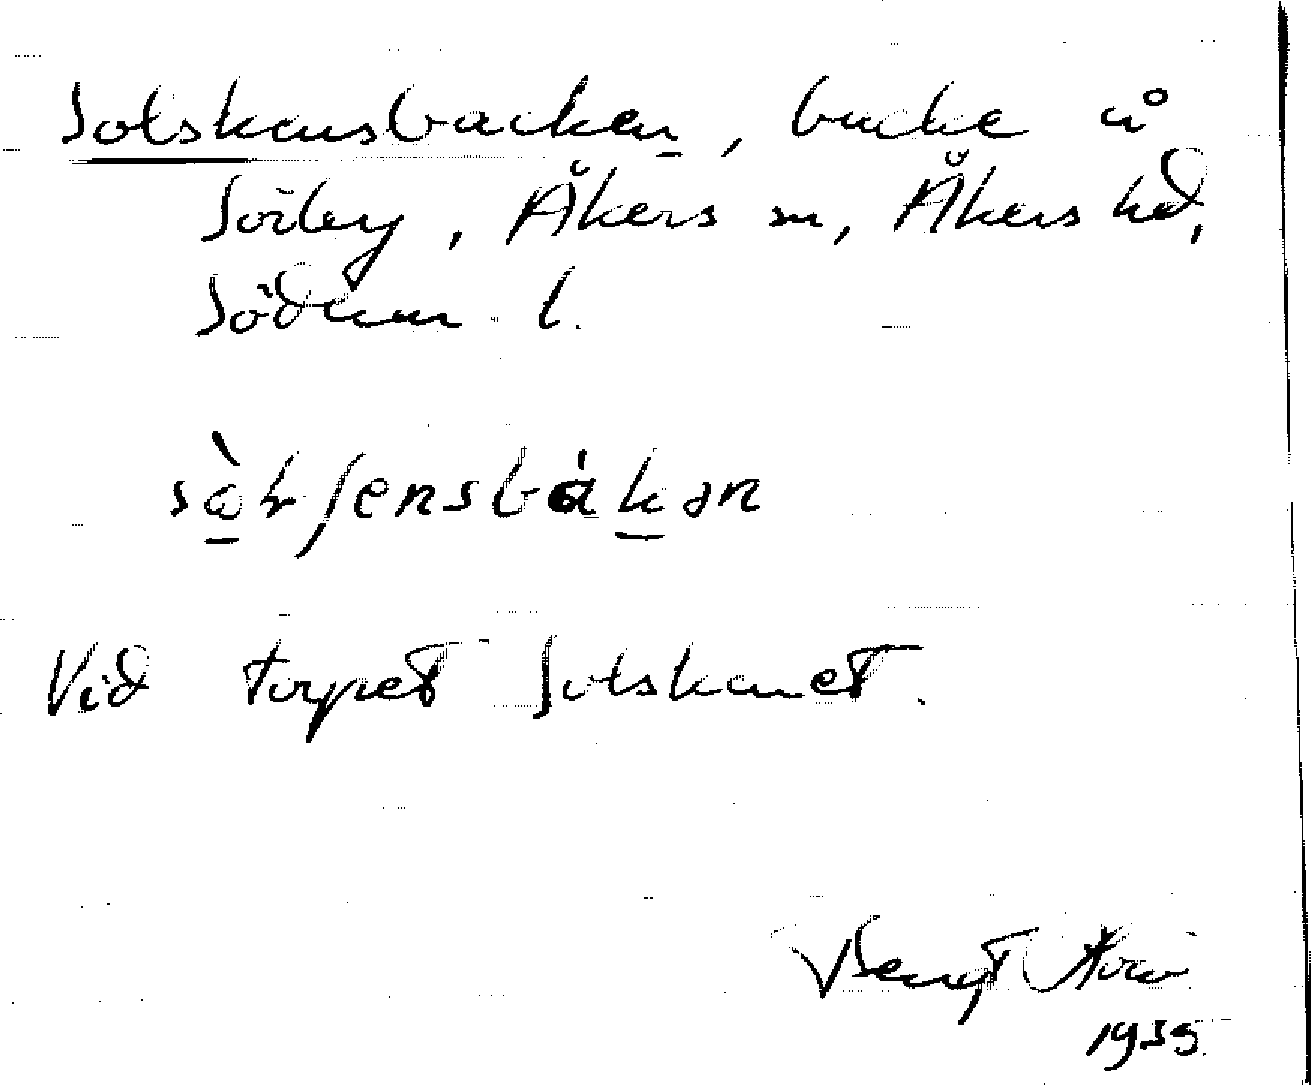 Solskensbacken, backe å
Sörby, Åkers sn, Åkers hd,
Söderm. l.
Vid torpet Solskenet.
Bengt
1935